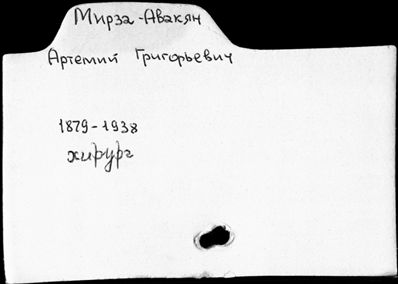 Мирза-Авакян
Артемий Григорьевич
1879-1938
хирург